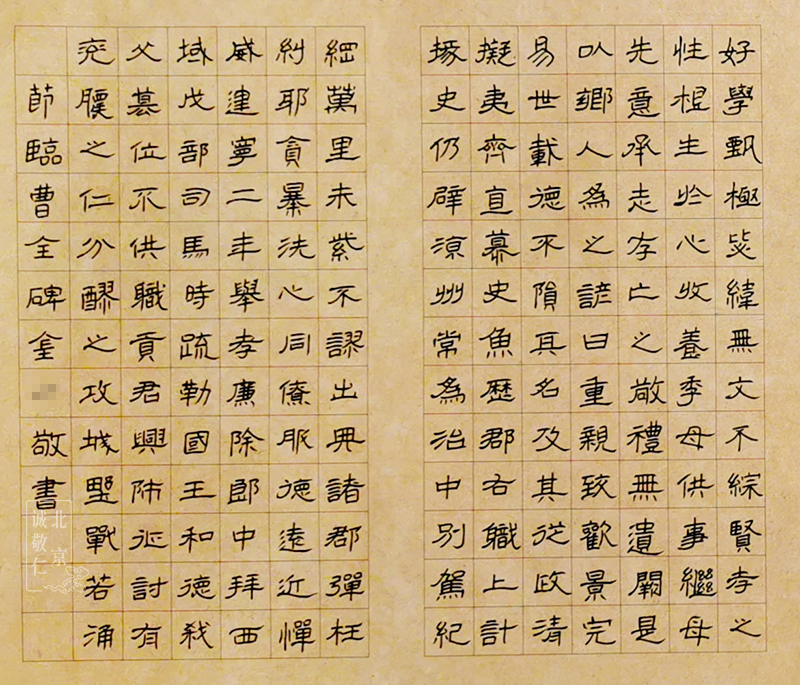 好學甄極毖緯無文不綜賢孝之
性根生於心收養季母供事繼母
先意承志存亡之敬禮無遺闕是
以鄉人為之諺曰重親致歡景完
易世載德不隕其名及其從政清
擬夷齊直慕史魚歷郡右職上計
掾史仍辟涼州常為治中別駕紀
綱萬里朱紫不謬出典諸郡彈枉
糾邪貪暴洗心同僚服德遠近憚
威建寧二年舉孝廉除郎中拜西
域戊部司馬時疏勒國王和德弒
父篡位不供職貢君興師征討有
兗膿之仁分醪之攻城野戰若涌
節臨曹全碑敬書
北京
诚敬仁